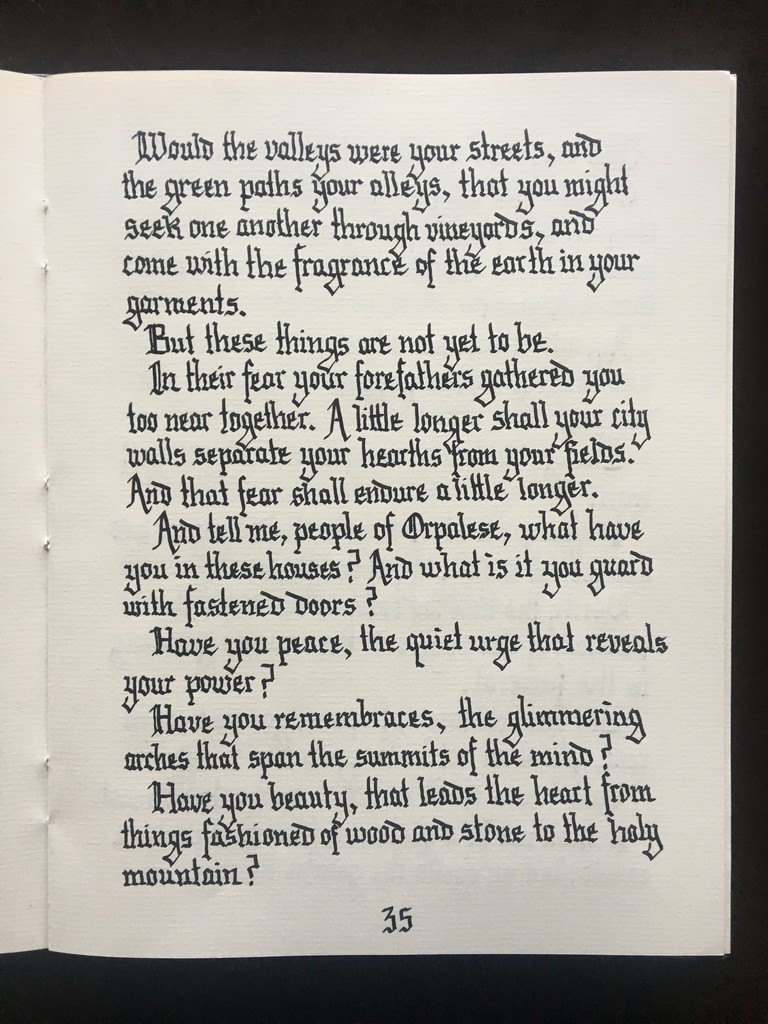 Would the valleys were your streets, and
the green paths your alleys, that you might
seek one another through vineyards, and
come with the fragrance of the earth in your
garments.
But these things are not yet to be.
In their fear your forefathers gathered you
too near together. A little longer shall your city
walls separate your hearths from your fields.
And that fear shall endure a little longer.
And tell me, people of Orpalese, what have
you in these houses? And what is it you guard
with fastened doors?
Have you peace, the quiet urge that reveals
your power?
Have you remembraces, the glimmering
arches that span the summits of the mind?
Have you beauty, that leads the heart from
things fashioned of wood and stone to the holy
mountain?
35